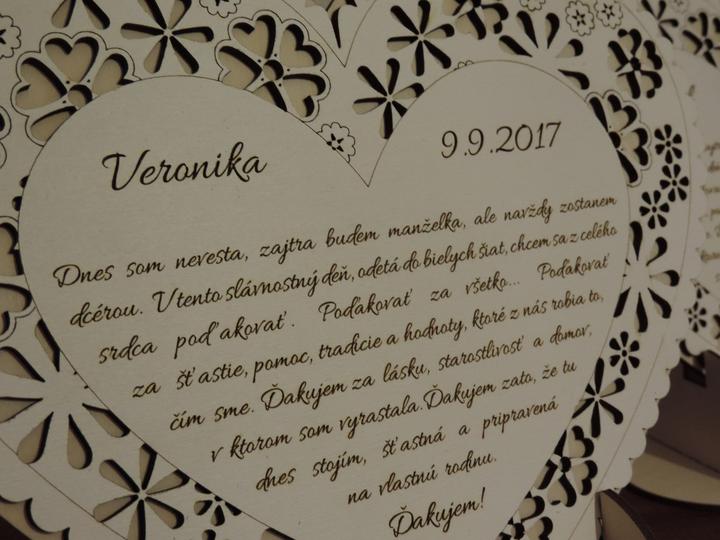 Veronika
9.9.2017
Dnes som nevesta, zajtra budem manželka, ale navždy zostanem
dcérou. V tento slávnostný deň, odetá do bielych šiat, chcem sa z celého
srdca poďakovať. Poďakovať za všetko... Poďakovať
za šťastie, pomoc, tradície a hodnoty, ktoré z nás robia to,
čím sme. Ďakujem za lásku, starostlivosť a domov,
v ktorom som vyrastala. Ďakujem zato, že tu
dnes stojím, šťastná a pripravená
na vlastnú rodinu.
Ďakujem!